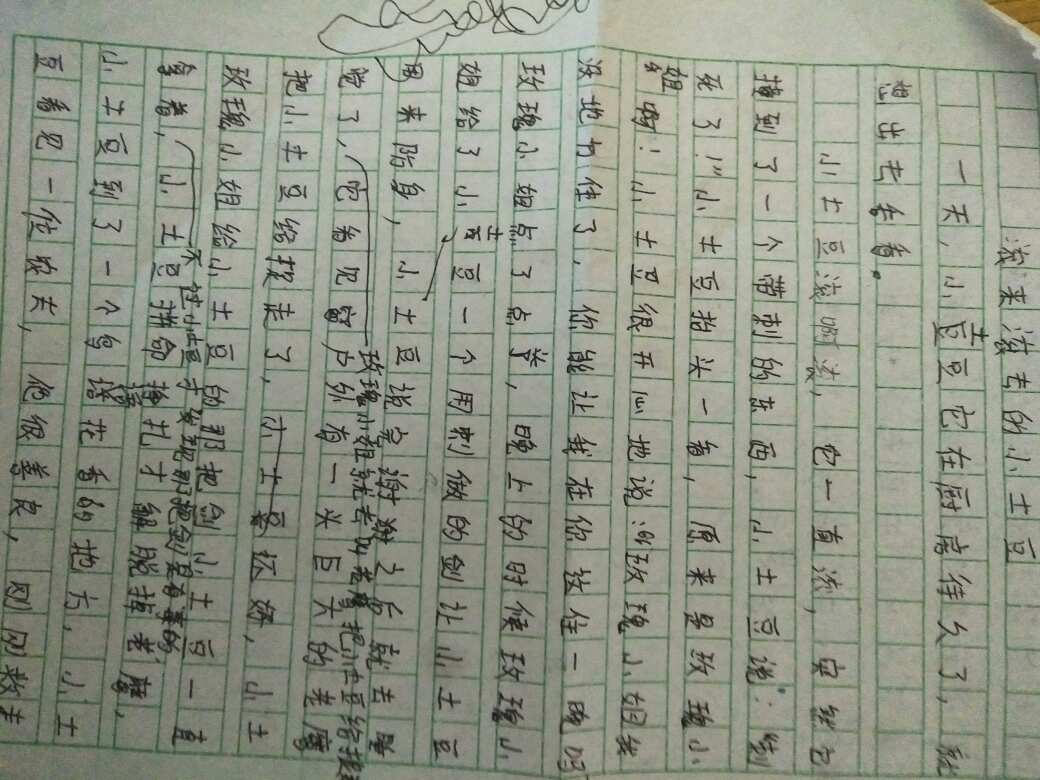 滚来滚去的小土豆
一天,小土豆豆它在厨房待久了,就
想出去看看。
小土豆滚啊滚,它一直滚,突然它
撞到了一个带刺的东西,小土豆说:"刺
死了!"小土豆抬头一看,原来是玫瑰小
姐啊!小土豆很开心地说:"玫瑰小姐我
没地方住了,你能让我在你这住一晚吗
玫瑰小姐点了点头,晚上的时候玫瑰小
姐给了小土豆一个用刺做的剑让小土豆
用来防身,小土豆说完谢谢之后就去睡
觉了,它看见窗户外有一只巨大的老鹰
玫瑰小姐就看见老鹰把小土豆给抓
把小土豆给抓走了,小土豆还好,小土
玫瑰小姐给小土豆的那把剑小土豆一直
不过小土豆才发现那把剑是有毒的,
拿着,小土豆拼命挣扎才解脱掉老鹰,
小土豆到了一个鸟语花香的地方,小土
豆看见一位农夫,他很善良,刚刚救走